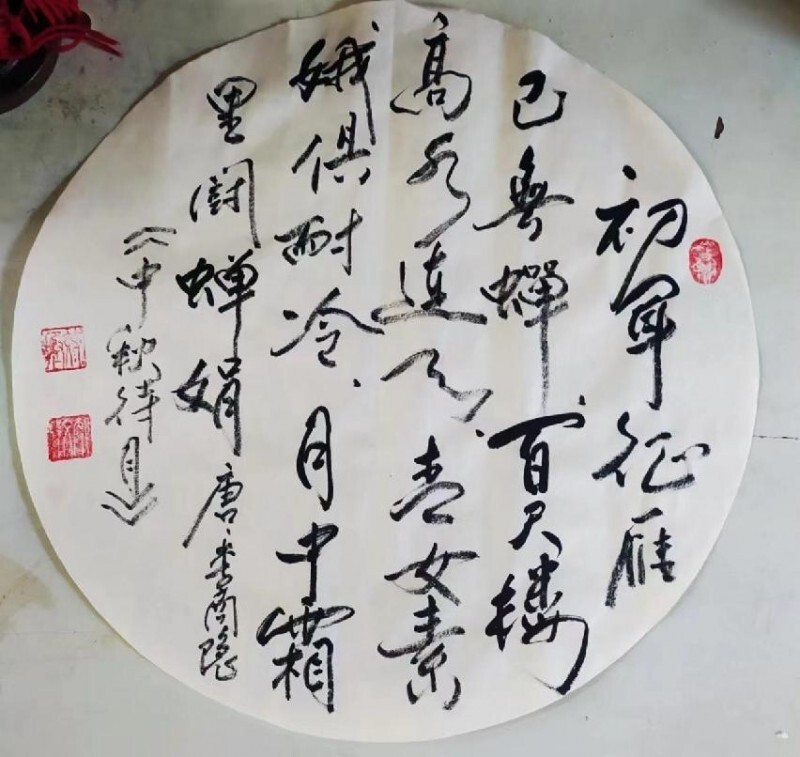 初闻征雁
已無蟬、百尺楼
高水連天、青女素
娥俱耐冷、月中霜
里闘蝉娟 唐·李商隐
《中秋待月》